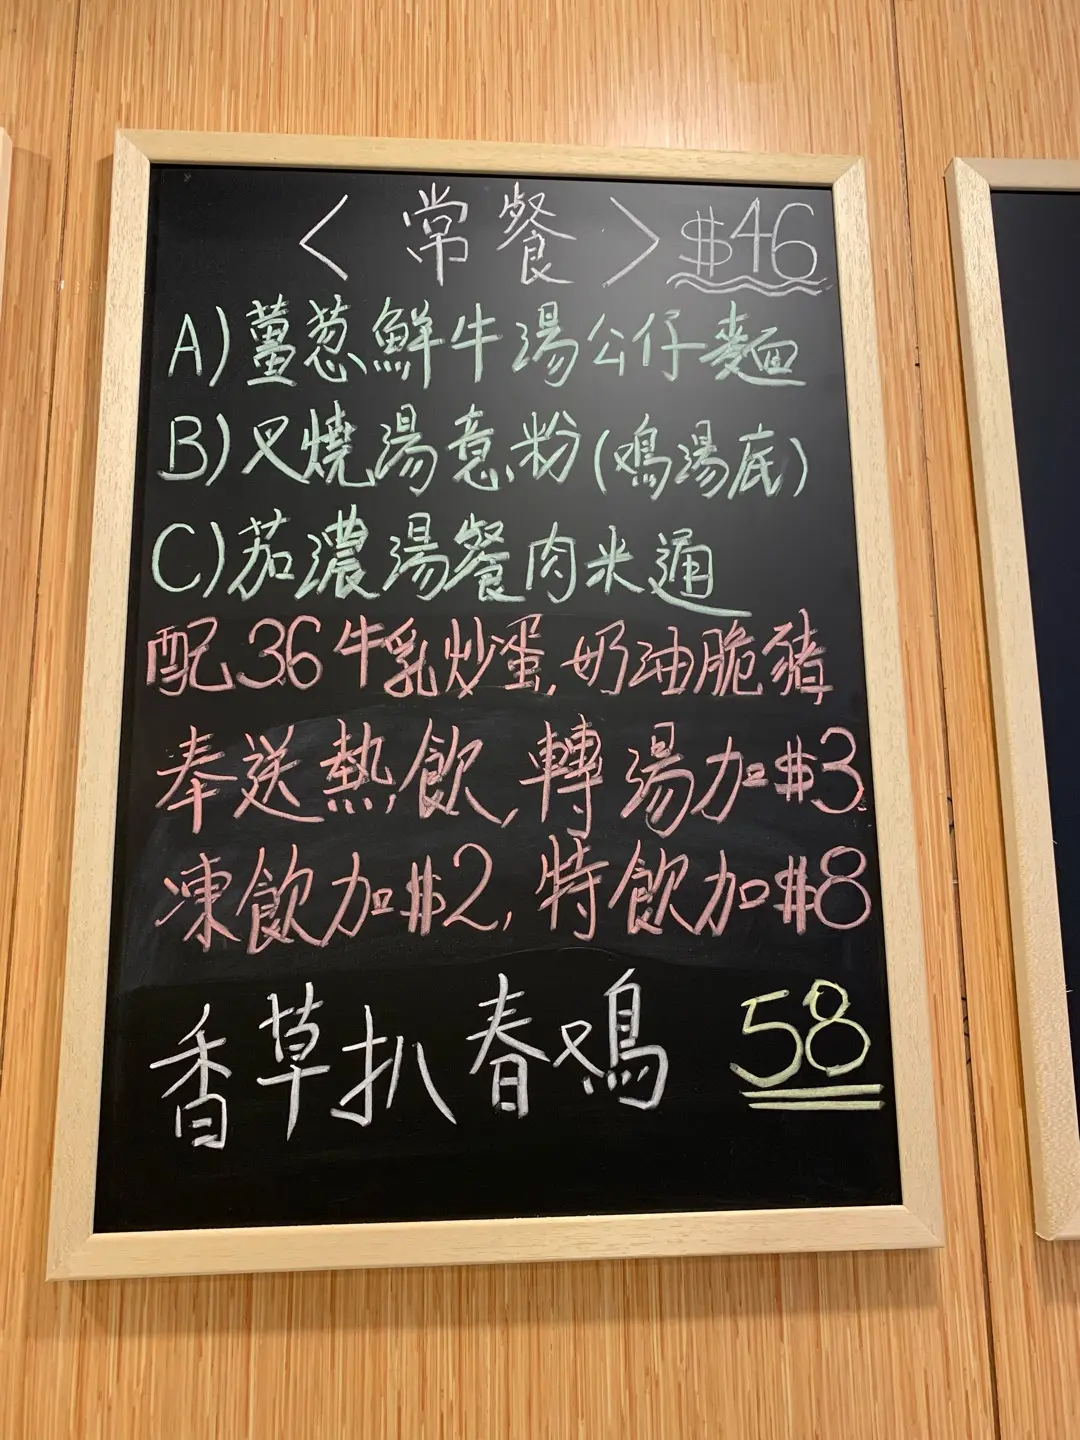 〈常餐〉$46
A)薑葱鮮牛湯公仔麵
B)叉燒湯意粉(鳮湯底)
C)茄濃湯餐肉米通
配36牛乳炒蛋,奶油脆豬
奉送熱飲,轉湯加$3
凍飲加$2,特飲加$8
香草扒春鳮 58